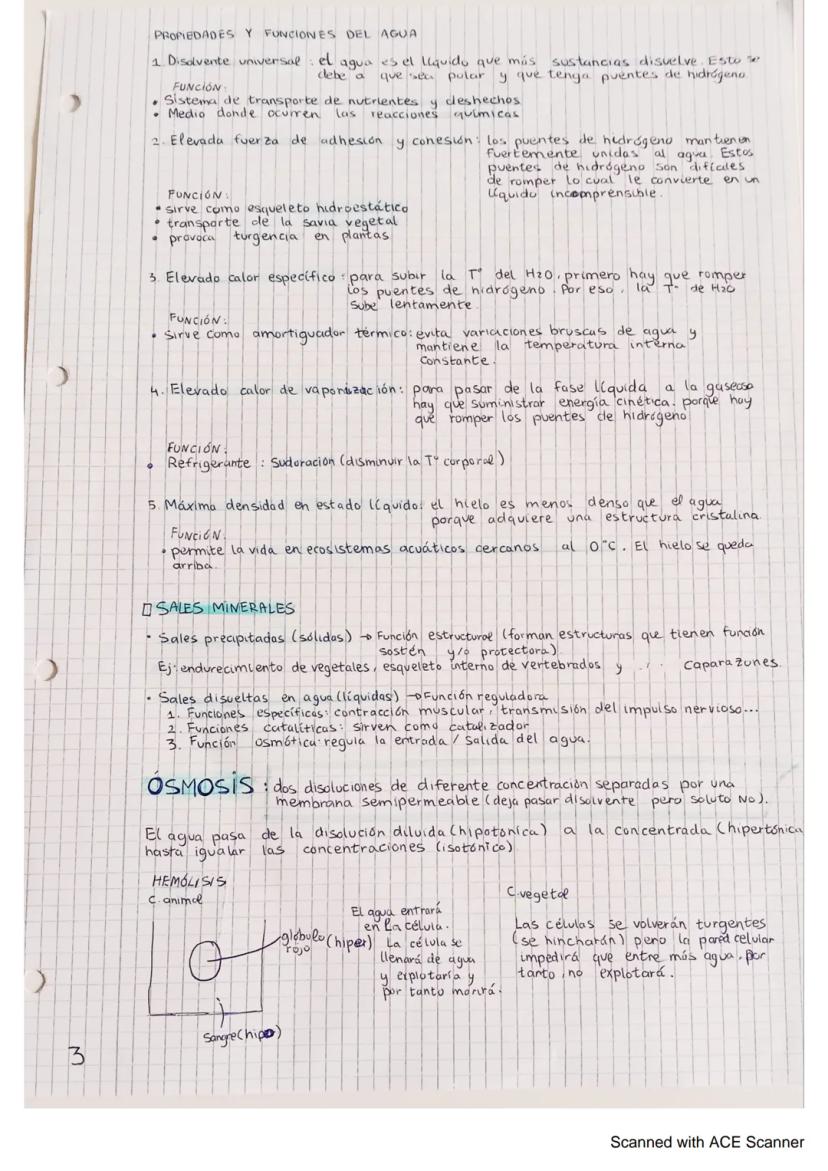 PROPIEDADES Y FUNCIONES DEL AGUA
1. Disolvente universal: el agua es el líquido que más sustancias disuelve. Esto se
debe a que sea polar y que tenga puentes de hidrógeno.
FUNCIÓN:
• Sistema de transporte de nutrientes y deshechos
• Medio donde ocurren las reacciones químicas
2. Elevada fuerza de adhesión y cohesión: los puentes de hidrógeno mantienen
fuertemente unidas al agua. Estos
puentes de hidrógeno son difíciles
de romper lo cual le convierte en un
líquido incomprensible.
FUNCIÓN:
• sirve como esqueleto hidroestático
• transporte de la savia vegetal
• provoca turgencia en plantas
3. Elevado calor específico: para subir la Tº del H2O, primero hay que romper
los puentes de hidrógeno. Por eso, la Tº de H2O
sube lentamente.
FUNCIÓN:
• Sirve como amortiguador térmico: evita variaciones bruscas de agua y
mantiene la temperatura interna
constante.
4. Elevado calor de vaporización: para pasar de la fase líquida a la gaseosa
hay que suministrar energía cinética, porque hay
que romper los puentes de hidrógeno
FUNCIÓN:
• Refrigerante: Sudoración (disminuir la Tº corporal)
5. Máxima densidad en estado líquido: el hielo es menos denso que el agua
porque adquiere una estructura cristalina.
FUNCIÓN.
• permite la vida en ecosistemas acuáticos cercanos al 0ºC. El hielo se queda
arriba.
SALES MINERALES
• Sales precipitadas (sólidas) → Función estructural (forman estructuras que tienen función
sostén y/o protectora).
Ej: endurecimiento de vegetales, esqueleto interno de vertebrados y caparazones.
• Sales disueltas en agua (líquidas) → Función reguladora
1. Funciones específicas: contracción muscular, transmisión del impulso nervioso...
2. Funciones catalíticas: sirven como catalizador
3. Función osmótica: regula la entrada / salida del agua.
ÓSMOSIS: dos disoluciones de diferente concentración separadas por una
membrana semipermeable (deja pasar disolvente pero soluto NO).
El agua pasa de la disolución diluida (hipotonica) a la concentrada (hipertónica
hasta igualar las concentraciones (isotónico)
HEMÓLISIS
C. animal
glóbulo (hiper)
rojo
Sangre (hipo)
El agua entrará
en la célula.
La célula se
llenará de agua
y explotaría y
por tanto morirá.
C. vegetal
Las células se volverán turgentes
(se hincharán) pero la pared celular
impedirá que entre más agua, por
tanto, no explotará.
3
Scanned with ACE Scanner